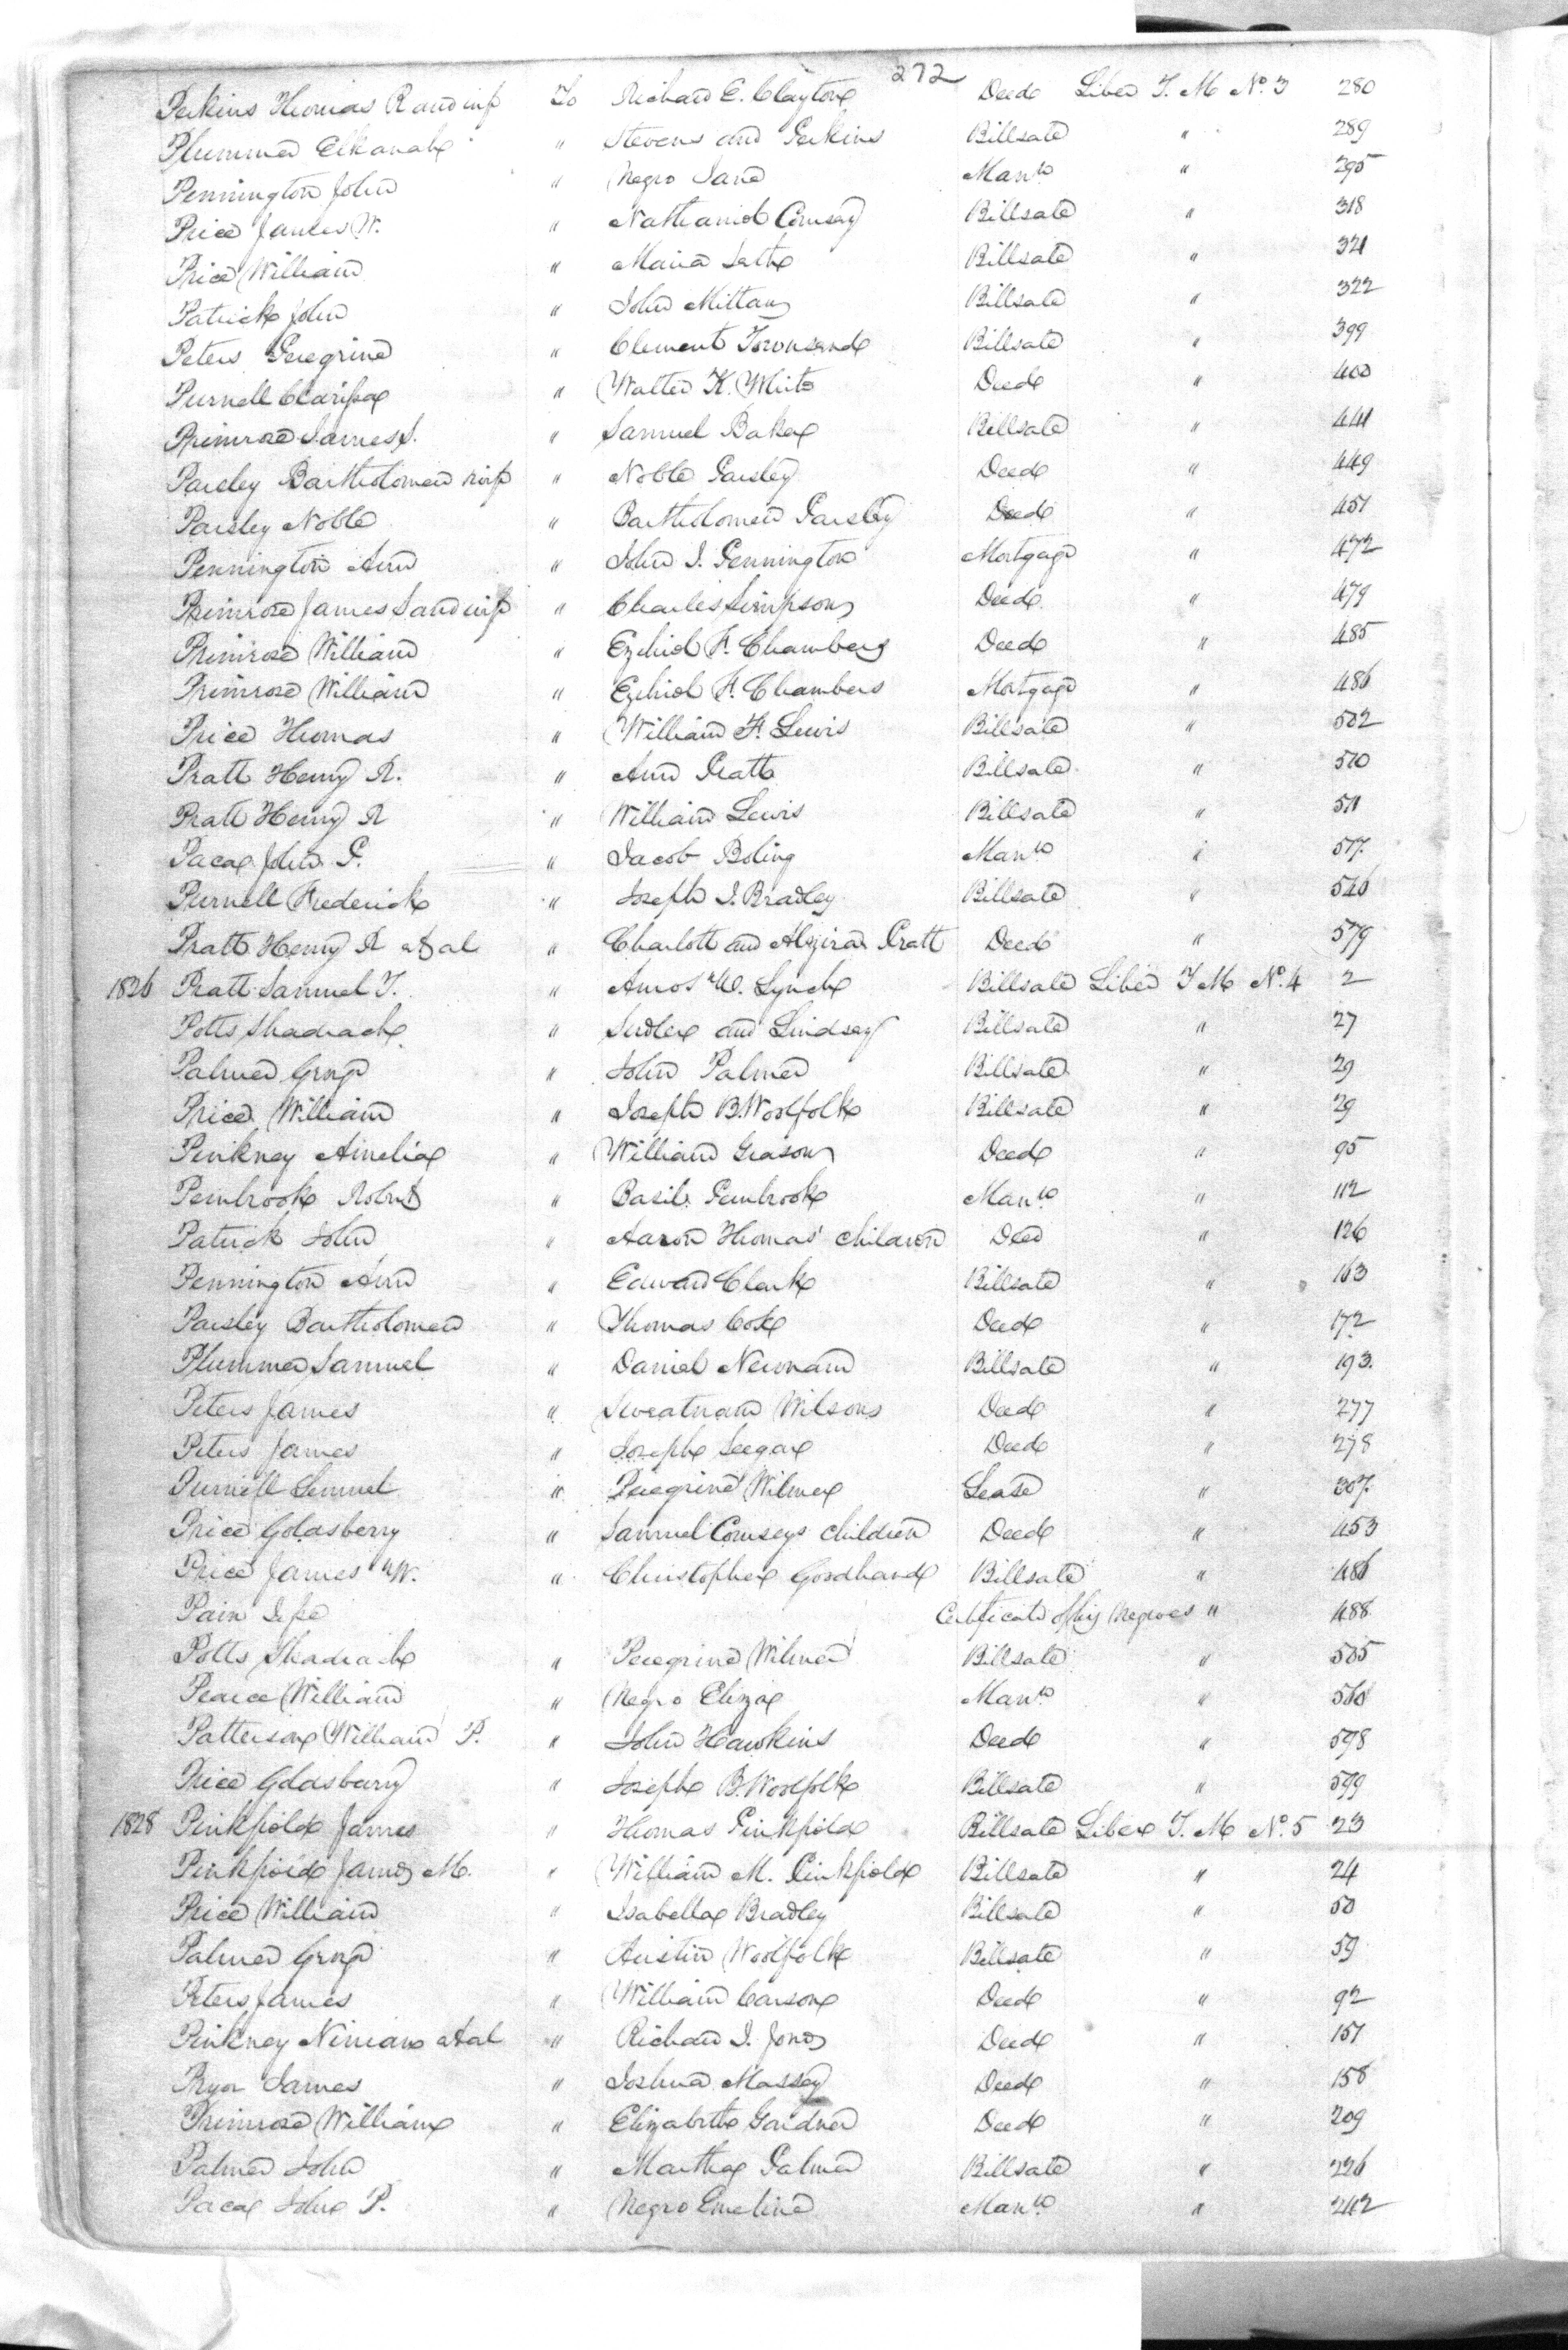 272
Perkins Thomas R and wife To Richard E. Clayton Deed Liber T. M No. 3 280
Plummer Elkanah " Stevens and Perkins Billsale " 289
Pennington John " Negro Jane Manto " 295
Price James W. " Nathaniel Comsey Billsale " 318
Price William " Maria Billsale " 321
Patrick John " John Billsale " 322
Peters Peregrine " Clement Townsend Billsale " 399
Purnell Clarissa " Walter K. White Deed " 400
Primrose James S. " Samuel Baker Billsale " 441
Parsley Bartholomew wife " Noble Parsley Deed " 449
Parsley Noble " Bartholomew Parsley Deed " 451
Pennington Ann " John J. Pennington Mortgage " 472
Primrose James S and wife " Charles Simpson Deed " 479
Primrose William " Ezekiel F. Chambers Deed " 485
Primrose William " Ezekiel F. Chambers Mortgage " 486
Price Thomas " William F. Lewis Billsale " 502
Pratt Henry R. " Ann Pratt Billsale " 510
Pratt Henry R " William Lewis Billsale " 511
Paca John P. " Jacob Boling Manto " 517
Purnell Frederick " Joseph J. Bradley Billsale " 546
Pratt Henry R et al " Charlott and Alzira Pratt Deed " 579
1826 Pratt Samuel T. " Amos W. Lynch Billsale Liber T M No. 4 2
Potts Shadrach " Sudler and Lindsey Billsale " 27
Palmer George " John Palmer Billsale " 29
Price William " Joseph B. Woolfolk Billsale " 29
Pinkney Amelia " William Grason Deed " 95
Pembrook Robert " Basil Pembrook Manto " 112
Patrick John " Aaron Thomas' children Deed " 126
Pennington Ann " Edward Clark Billsale " 163
Parsley Bartholomew " Thomas Cox Deed " 172
Plummer Samuel " Daniel Newnam Billsale " 193
Peters James " Sweatnam Wilson Deed " 277
Peters James " Joseph Seegar Deed " 278
Purnell Lemuel " Peregrine Wilmer Lease " 307
Price Goldsberry " Samuel Comseys children Deed " 453
Price James W. " Christopher Goodhand Billsale " 486
Pain Jesse Certificate of his Negroes " 488
Potts Shadrach " Peregrine Wilmer Billsale " 505
Pearce William " Negro Eliza Manto " 560
Patterson William P. " John Hawkins Deed " 598
Price Goldsbery " Joseph B. Woolfolk Billsale " 599
1828 Pinkfield James " Thomas Pinkfield Billsale Liber T. M No. 5 23
Pinkfield James M. " William M. Pinkfield Billsale " 24
Price William " Isabella Bradley Billsale " 50
Palmer George " Austin Woolfolk Billsale " 59
Peters James " William Carson Deed " 92
Pinkney Ninian et al " Richard I. Jones Deed " 151
Pryor James " Joshua Massey Deed " 158
Primrose William " Elizabeth Gardner Deed " 209
Palmer John " Martha Palmer Billsale " 226
Paca John P. " Negro Emeline Manto " 242